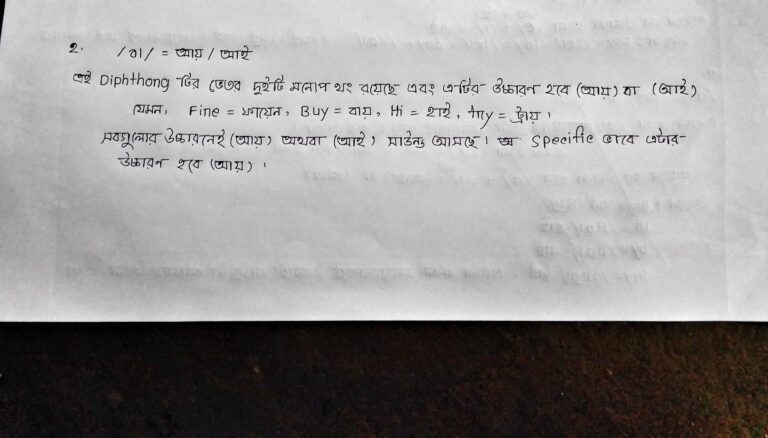 ২. /aı/ = আয় / আই
এই Diphthong টির ভেতর দুইটি মনোপ থং রয়েছে এবং এটির উচ্চারণ হবে (আয়) বা (আই)
যেমন, Fine = ফায়েন, Buy = বায়, Hi = হাই, try = ট্রায়।
সবগুলোর উচ্চারনেই (আয়) অথবা (আই) সাউন্ড আসছে। Specific ভাবে এটার
উচ্চারণ হবে (আয়)।